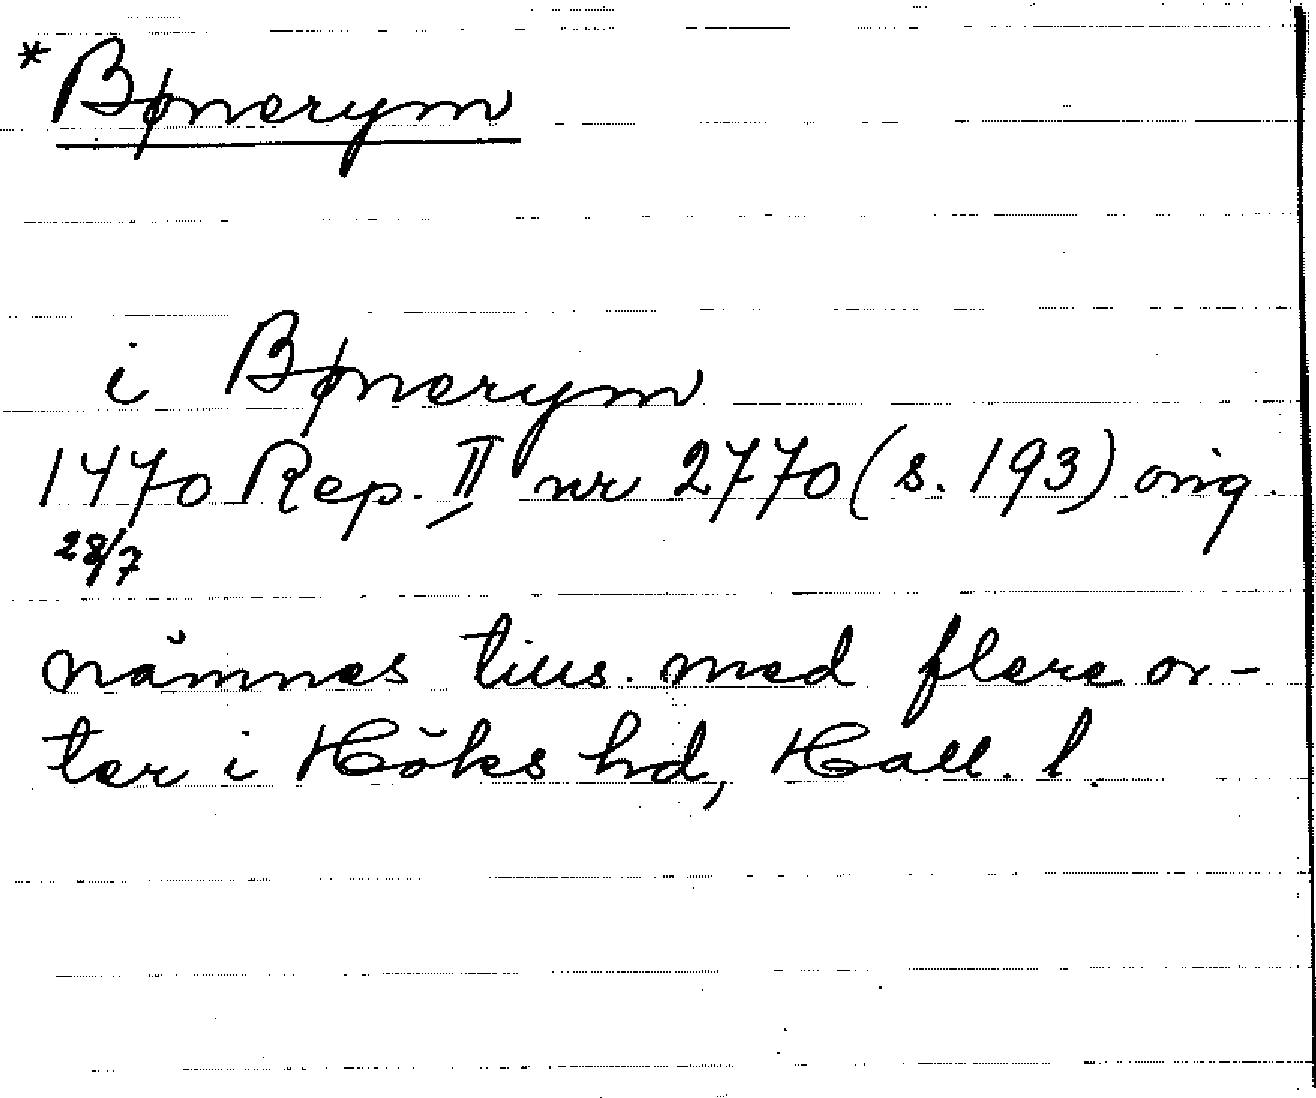 *Bønerym
i Bønerym
1470 Rep. II nr 2770 (s. 193) orig.
28/7
nämnes tills. med flere or-
ter i Höks hd, Hall. l.